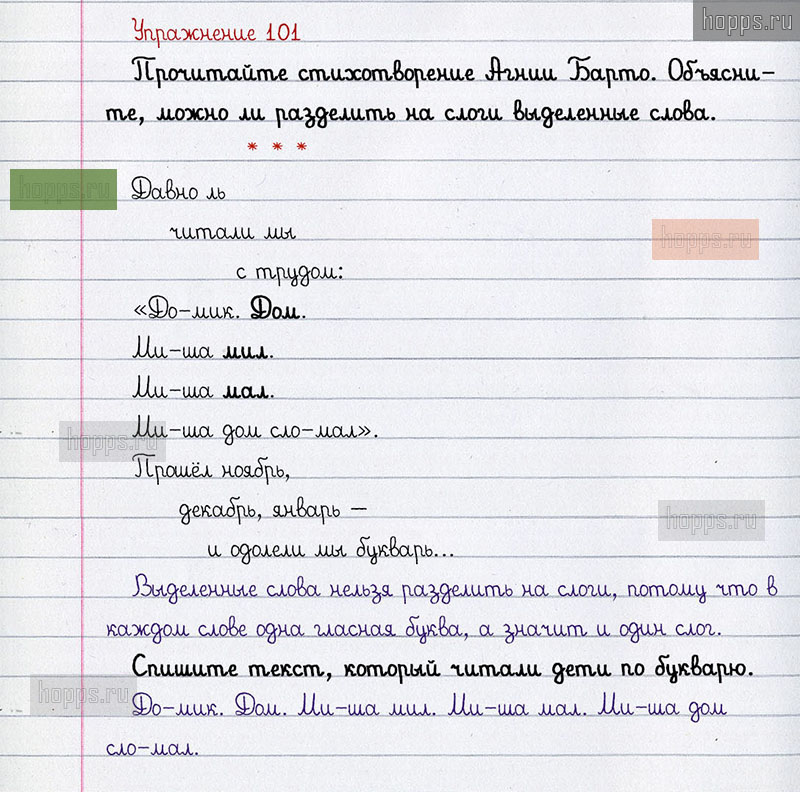 hopps.ru
Упражнение 101
Прочитайте стихотворение Агнии Барто. Объясни-
те, можно ли разделить на слоги выделенные слова.
* * *
hopps.ru
Давно ль
читали мы
hopps.ru
с трудом:
«До-мик. Дом.
Ми-ша мил.
Ми-ша мал.
Ми-ша дом сло-мал».
hopps.ru
Прошёл ноябрь,
декабрь, январь —
hopps.ru
и одолели мы букварь...
Выделенные слова нельзя разделить на слоги, потому что в
каждом слове одна гласная буква, а значит и один слог.
Спишите текст, который читали дети по букварю.
hopps.ru
До-мик. Дом. Ми-ша мил. Ми-ша мал. Ми-ша дом
сло-мал.